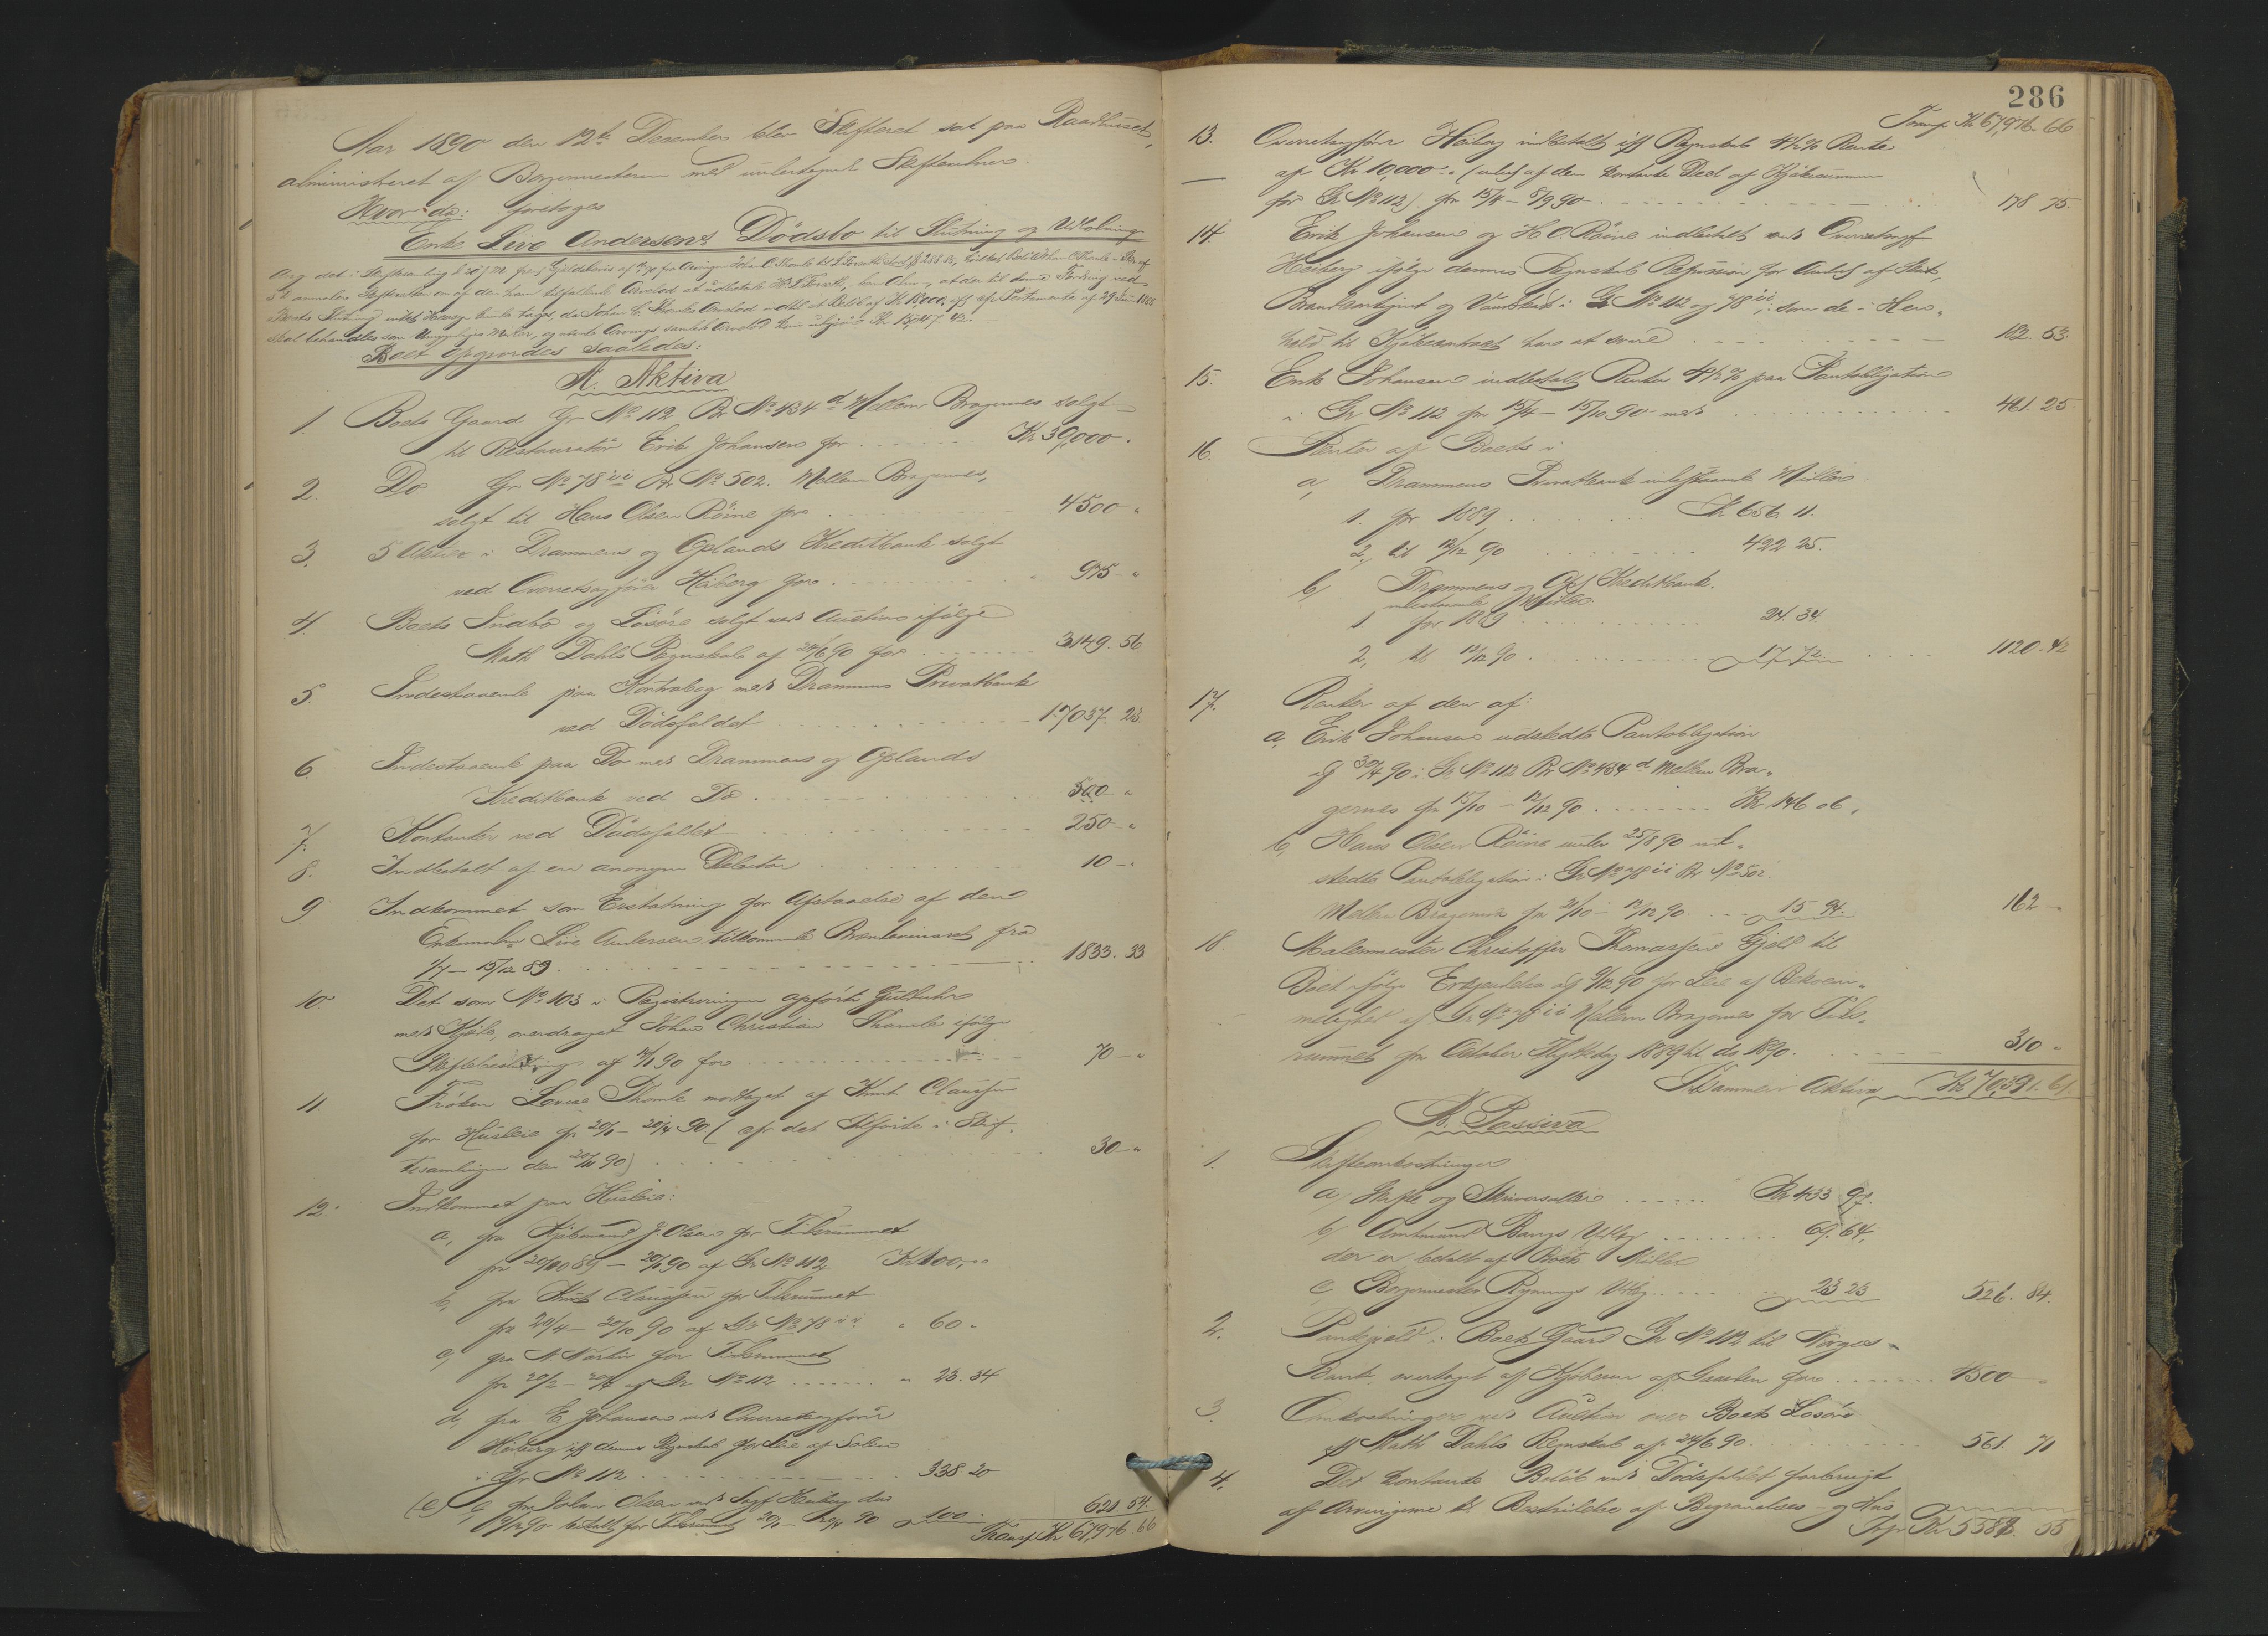 Aar 1890 den 12te December blev Skifteret sat paa Raadhuset,
administreret af Borgermesteren med undertegnet Skriver
Hvor da: foretoges
Enke Live Andersens Dødsbo til Slutning og Udlodning
Boet opgjordes saaledes:
A. Aktiva
1. Boets Gaard Gr No 112 Br No 434 d Mellem Bragernes solgt
til Restauratør Erik Johansen for Kr 39,000 "
2. Do Gr No 78 ii Br No 502. Mellem Bragernes,
solgt til Hans Olsen Röine for 4500 "
3. 5 Aktier i Drammens og Oplands Kreditbank solgt
ved Overretssagfører Heiberg for 975 "
4. Boets Indbo og Løsøre solgt ved Auktion ifølge
Math Dahls Regnskab af 24/6 90 for 3149. 56
5. Indestaaende paa Kontrabog med Drammens Privatbank
ved Dødsfaldet 17037. 23.
6. Indestaaende paa Do med Drammens og Oplands
Kreditbank ved Do 500 "
7. Kontanter ved Dødsfaldet 250 "
8. Indbetalt af en anonym Debitor 10 "
9. Indkommet som Erstatning for Afstaaelse af den
Enkemadm Live Andersen tilkommende Brændevinsret fra
1/7 – 15/12 89 1833. 33
10. Det som No 103 i Registreringen opførte Gulduhr
med Kjede, overdraget Johan Christian Thomle ifølge
Skiftebeslutning af 4/1 90 for 70 "
11 Frøken Lovise Thomle modtaget af Knut Claussen
for Husleie fr 20/1 – 20/4 90 (cfr det Tilførte i Skif-
tesamlingen den 20/11 90) 30 "
12. Indkommet paa Husleie:
a, fra Kjøbmand J. Olsen for Tidsrummet
fra 20/10 89 – 20/1 90 af Gr No 112 Kr 100, "
b, fra Knut Claussen for Tidsrummet
fra 20/4 – 20/10 90 af Gr No 78 ii " 60 "
c, fra N. Martin for Tidsrummet
fr 20/2 – 20/4 af Gr No 112 " 23. 34
d, fra E Johansen ved Overretssagfører
Heiberg iflg dennes Regnskab for Leie af Salen
i Gr No 112 338. 20
(e) e, fra Johan Olsen ved Sagf Heiberg den
9/12 90 betalt for Tidsrummet 20/1 – 20/4 90 100. 621. 54.
Transp Kr 67,976. 66
286
Transp Kr 67,976. 66
13. Overretssagfører Heiberg indbetalt iflg Regnskab 4½ % Rente
af Kr 10,000 " (indeh af den kontante Deel af Kjøbesummen
for Gr No 112) fra 15/4 – 8/9 90 178 75.
14. Erik Johansen og H. O. Röine indbetalt ved Overretssagf
Heiberg ifølge dennes Regnskab Refusion for Andel af Skat,
Brandkontingent og Vandskat i Gr No 112 og 78 ii, som de i Hen-
hold til Kjøbekontract have at svare 182. 53.
15. Erik Johansen indbetalt Renter 4½ % paa Pantobligation
i Gr No 112 fra 15/4 – 15/10 90 med 461. 25.
16. Renter af Boets i
a, Drammens Privatbank indestaaende Midler
1. for 1889 Kr 656. 11.
2, til 12/12 90 422 25.
b, Drammens og Opl Kreditbank.
indestaaende Midler.
1 for 1889 24. 34.
2, til 12/12 90 17. 72. 1120. 42
17. Renter af den af:
a, Erik Johansen udstedte Pantobligation
af 30/4 90 i Gr No 112 Br No 434 d Mellem Bra-
gernes fra 15/10 – 12/12 90 Kr 146. 06.
b, Hans Olsen Röine under 25/8 90 ud-
stedte Pantobligation i Gr No 78 ii Br No 502
Mellem Bragernes fra 2/10 – 12/12 90 15 94. 162 "
18. Malermester Christoffer Thomassens Gjeld til
Boet ifølge Erkjendelse af 9/12 90 for Leie af Bekvem-
melighed af Gr No 78 ii Mellem Bragernes for Tids-
rummet fra October Flyttedag 1889 til do 1890. 310 "
Summen Aktiva Kr 70,391. 61.
B. Passiva
1. Skifteomkostninger
a, Skifte og Skriversalær Kr 433 97.
b, Amtmand Bangs Udlæg 69. 64.
der er betalt af Boets Midler
c, Borgermester Rynnings Udlæg 23 23 526. 84.
2. Pantegjeld i Boets Gaard Gr No 112 til Norges
Bank overtaget af Kjøberen af Gaarden for 4500 "
3. Omkostninger ved Auktion over Boets Løsøre
iflg Math Dahls Regnskab af 24/6 90 561. 71
4. Det kontante Beløb ved Dødsfaldet forbrugt
af Arvingerne til Bestridelse af Begravelses- og Hus
Trsp Kr 5588. 55